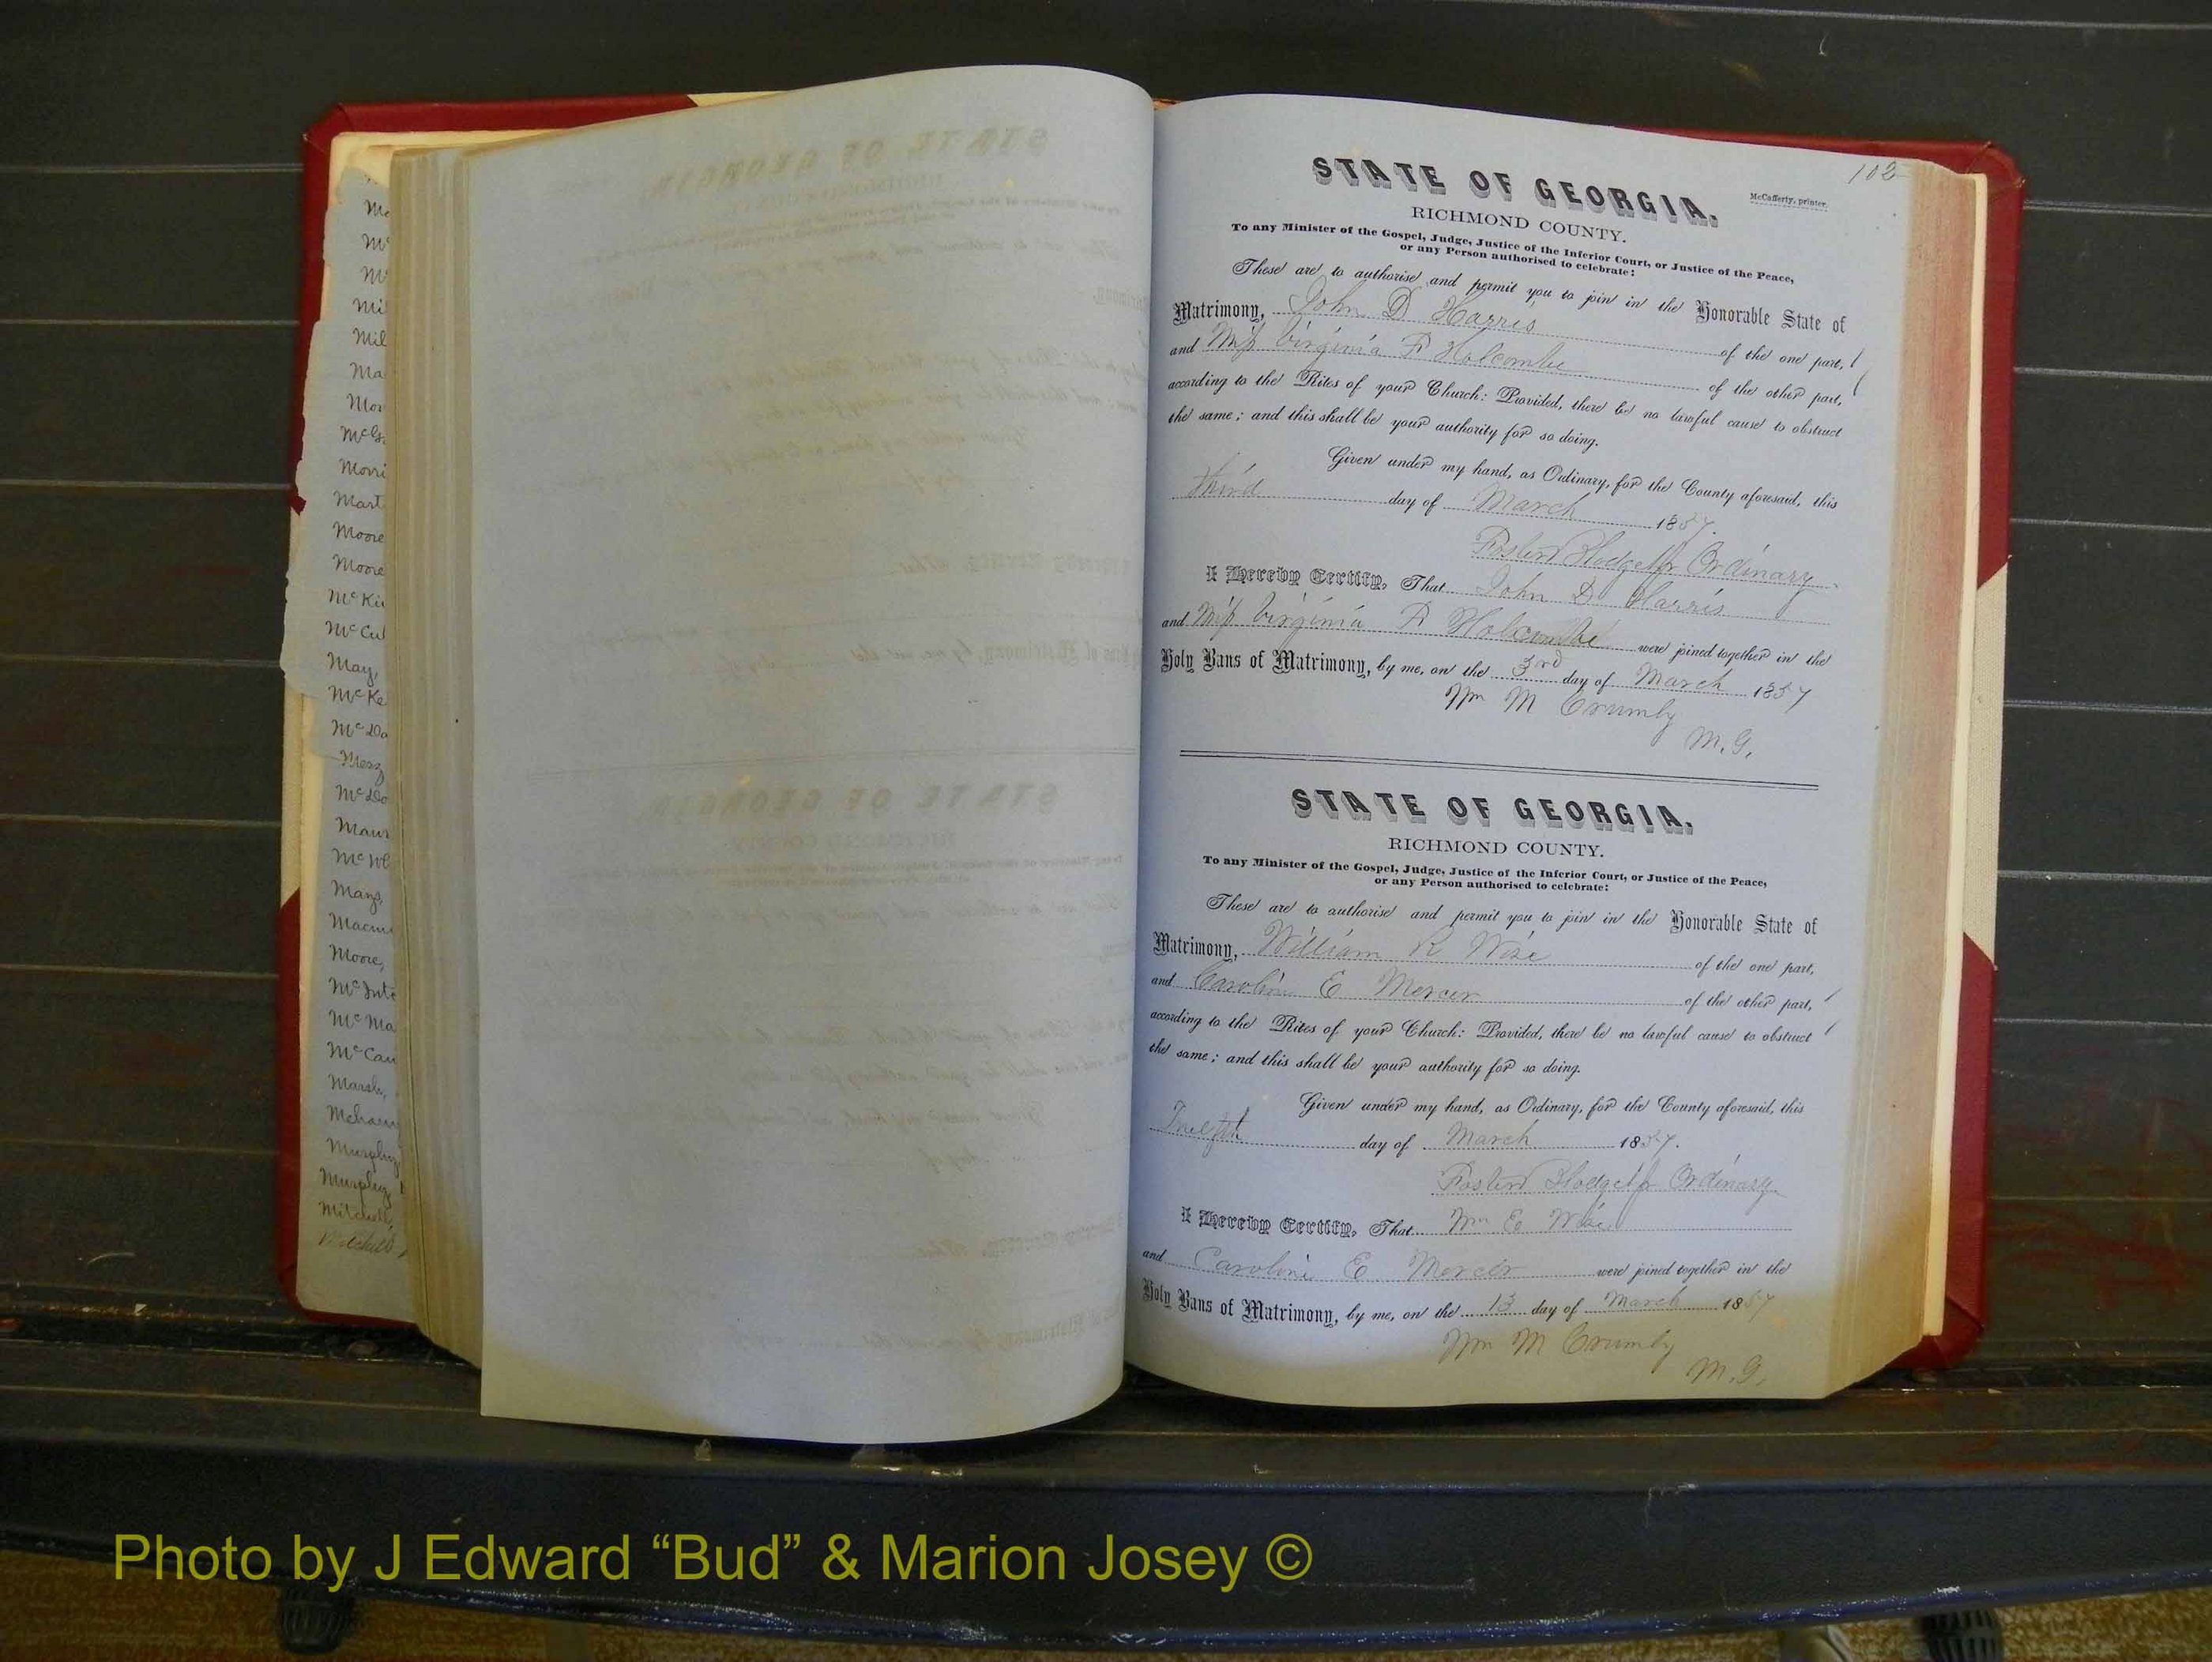 Mc
Mc
M
Mil
Mil
Ma
Mor
McG
Morri
Mart
Moore
Moore
McKi
McCul
May,
McKe
McDa
Merz
McDo
Maur
McWh
Mays,
Macm
Moore,
McInt
McMa
McCau
Marsh,
Mcham
Murphy
Murphy
Mitchell,
Mitchell
102
STATE OF GEORGIA.
McCafferty, printer.
RICHMOND COUNTY.
To any Minister of the Gospel, Judge, Justice of the Inferior Court, or Justice of the Peace,
or any Person authorised to celebrate:
These are to authorise and permit you to join in the Honorable State of
Matrimony, John D Harris of the one part,
and Miss Virginia F Holcombe of the other part,
according to the Rites of your Church: Provided, there be no lawful cause to obstruct
the same; and this shall be your authority for so doing.
Given under my hand, as Ordinary, for the County aforesaid, this
third day of March 1857.
Foster Blodget Jr Ordinary
I Hereby Certify, That John D Harris
and Miss Virginia F Holcombe were joined together in the
Holy Bans of Matrimony, by me, on the 3rd day of March 1857
Wm M Crumly
M.G.
STATE OF GEORGIA.
RICHMOND COUNTY.
To any Minister of the Gospel, Judge, Justice of the Inferior Court, or Justice of the Peace,
or any Person authorised to celebrate:
These are to authorise and permit you to join in the Honorable State of
Matrimony, William R Wise of the one part,
and Caroline E Mercer of the other part,
according to the Rites of your Church: Provided, there be no lawful cause to obstruct
the same; and this shall be your authority for so doing.
Given under my hand, as Ordinary, for the County aforesaid, this
Twelfth day of March 1857.
Foster Blodget Jr Ordinary
I Hereby Certify, That Wm E Wise
and Caroline E Mercer were joined together in the
Holy Bans of Matrimony, by me, on the 13 day of March 1857
Wm M Crumly
M.G.
Photo by J Edward “Bud” & Marion Josey ©